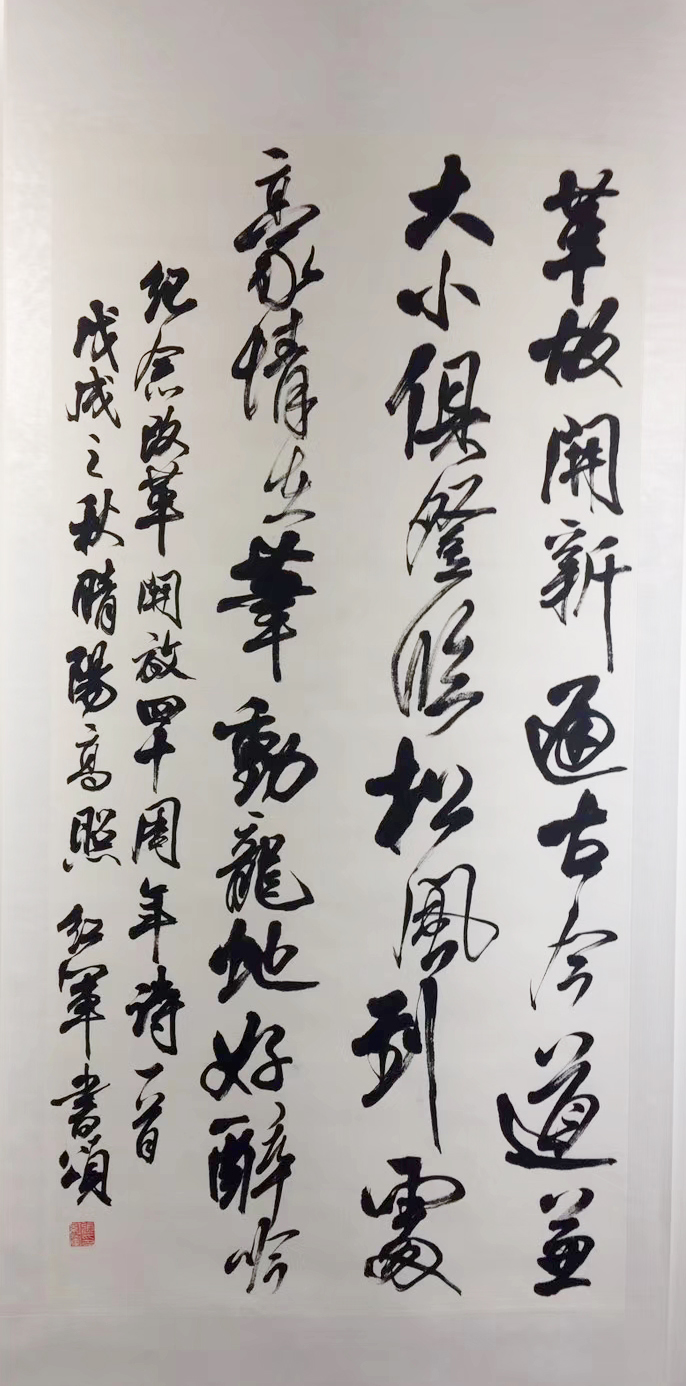 革故開新通古今道並
大小俱登臨松風到處
豪情在筆動龍虵好醉吟
纪念改革開放四十周年詩一首
戊戌之秋晴陽高照 红軍書頌